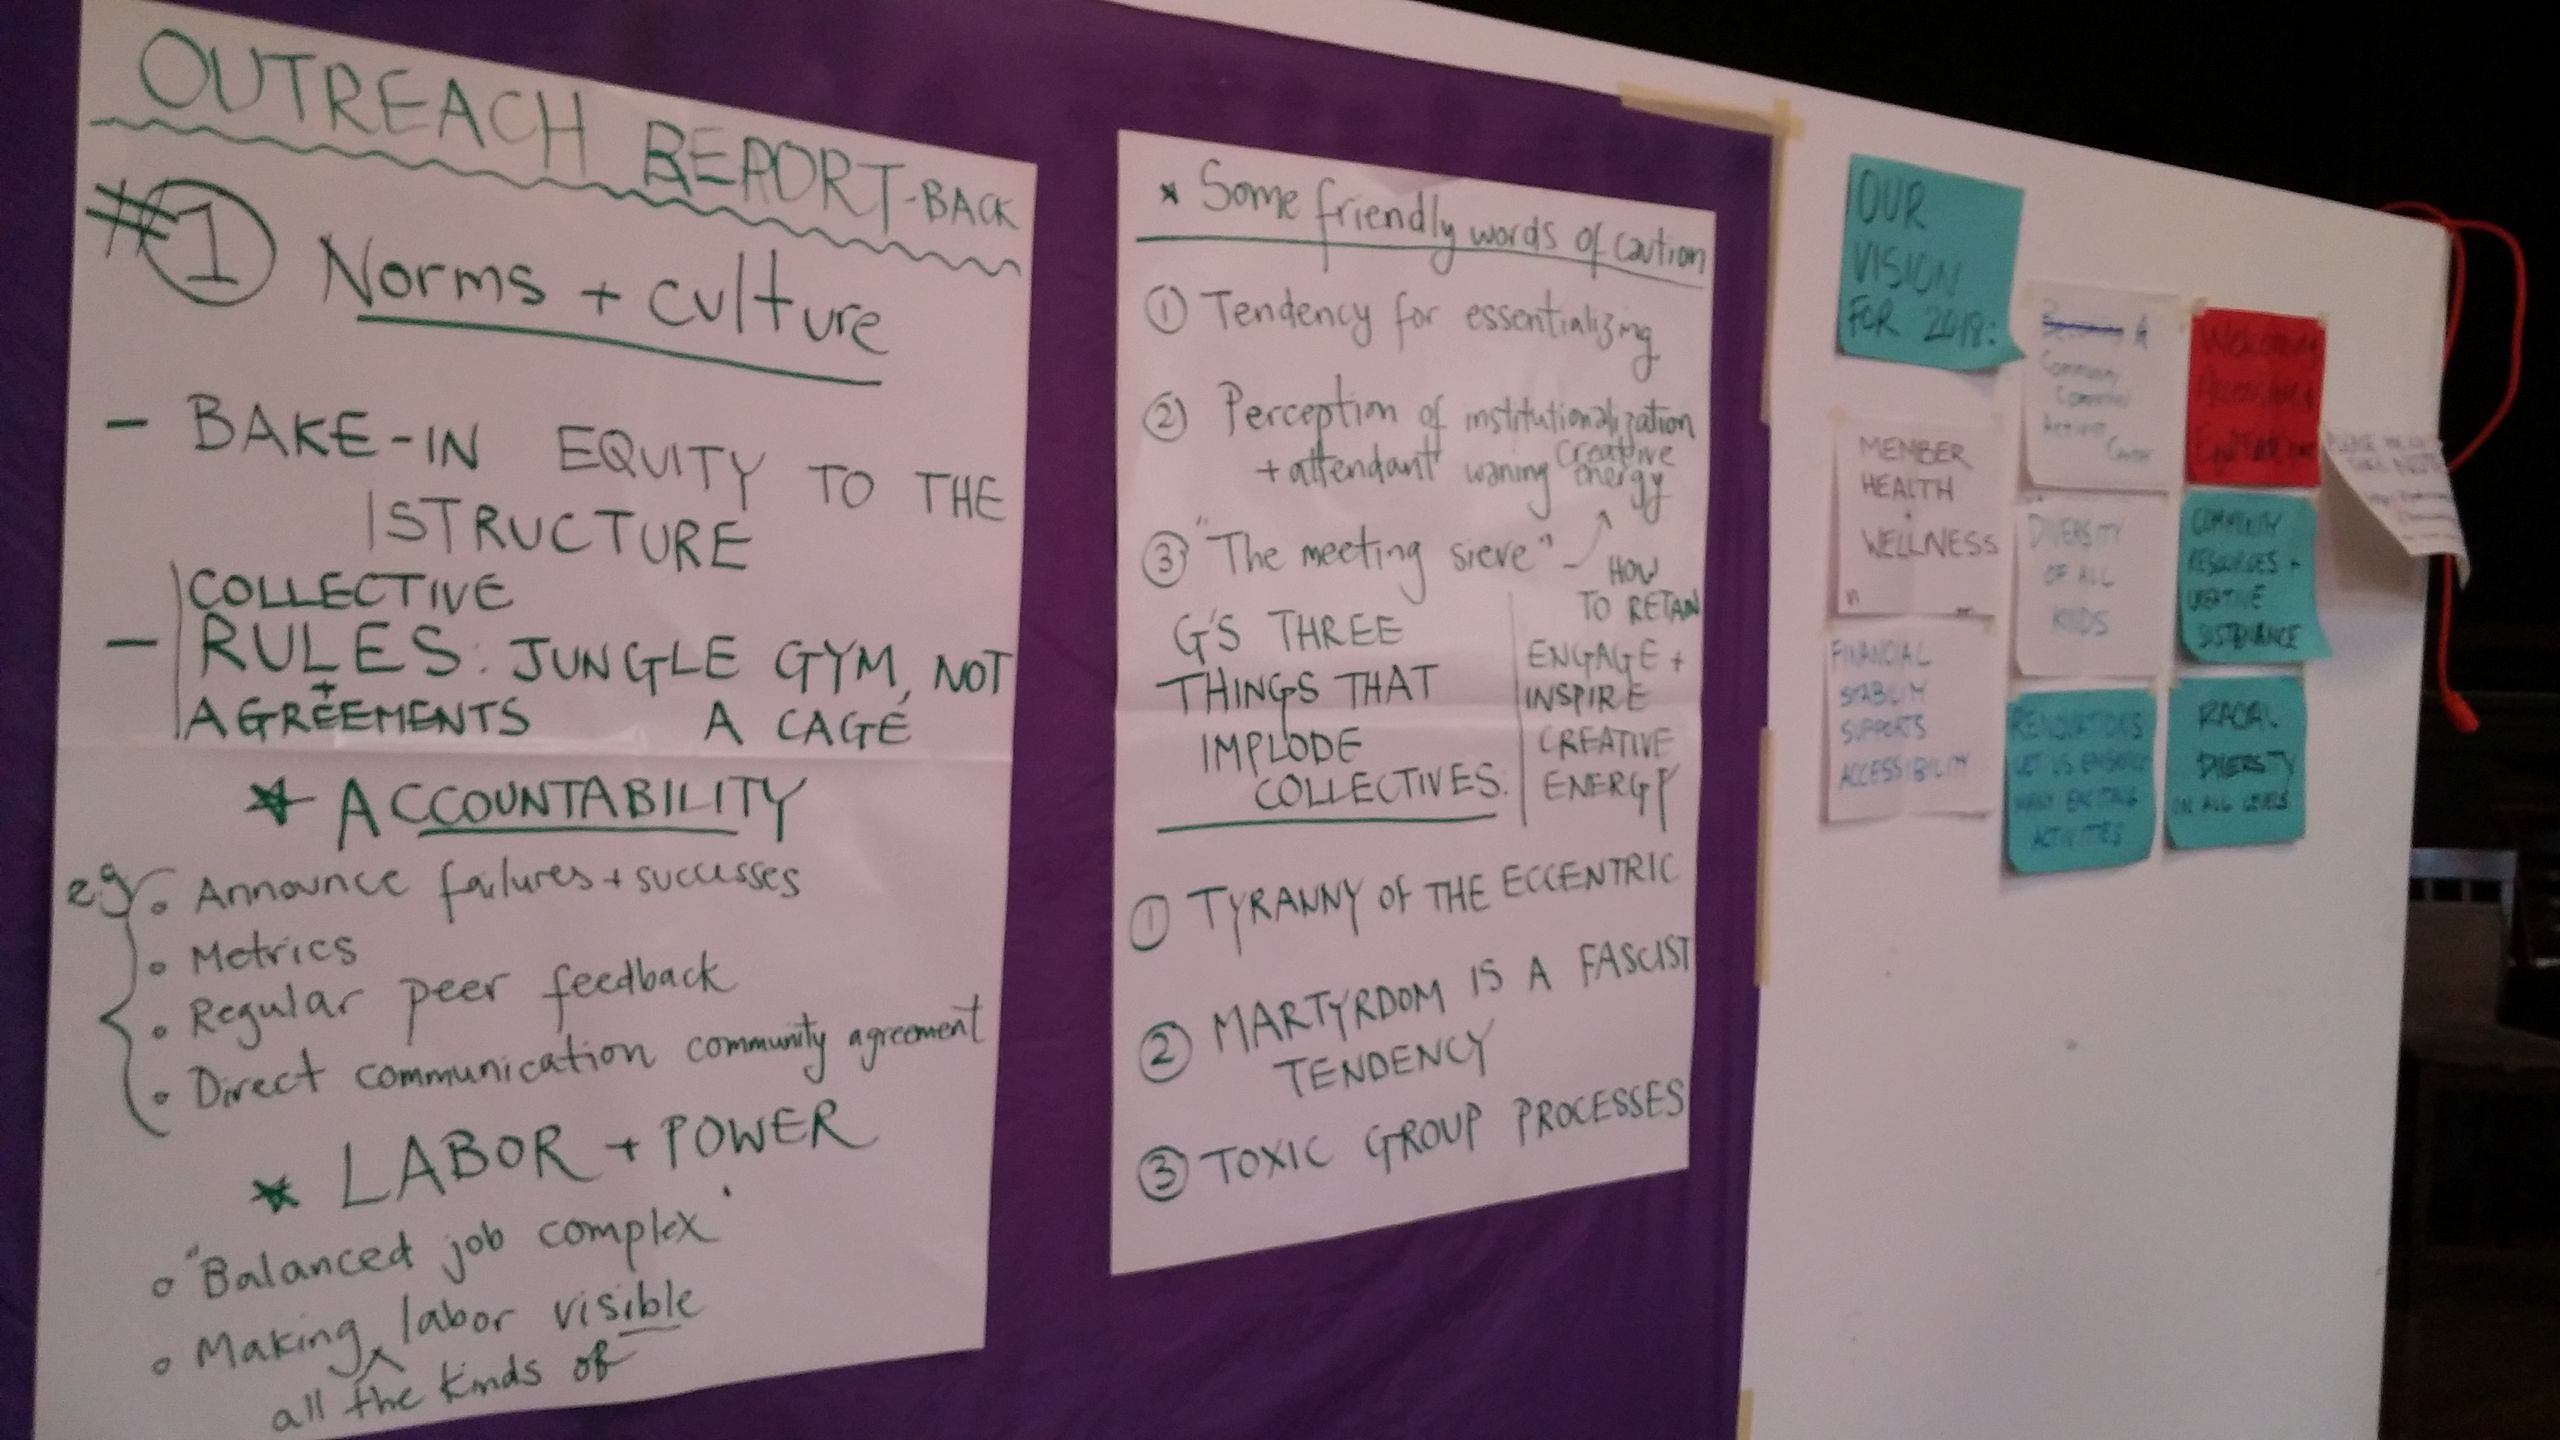 OUTREACH REPORT-BACK
#1 Norms + culture
- BAKE-IN EQUITY TO THE
STRUCTURE
COLLECTIVE
- RULES: JUNGLE GYM, NOT
+
AGREEMENTS A CAGE
★ ACCOUNTABILITY
eg • Announce failures + successes
• Metrics
• Regular peer feedback
• Direct communication community agreement
★ LABOR + POWER
• "Balanced job complex"
• Making labor visible
^ all the kinds of
★ Some friendly words of caution
① Tendency for essentializing
② Perception of institutionalization
creative
+ attendant waning energy
③ "The meeting sieve"
HOW
TO RETAIN
ENGAGE +
INSPIRE
CREATIVE
ENERGY
G'S THREE
THINGS THAT
IMPLODE
COLLECTIVES:
① TYRANNY OF THE ECCENTRIC
② MARTYRDOM IS A FASCIST
TENDENCY
③ TOXIC GROUP PROCESSES
OUR
VISION
FOR 2018:
A
Community
Center
Welcoming
MEMBER
HEALTH
WELLNESS
DIVERSITY
OF ALL
KINDS
COMMUNITY
RESOURCES +
CREATIVE
SUSTENANCE
FINANCIAL
STABILITY
SUPPORTS
ACCESSIBILITY
RENOVATIONS
LET US
EXCITING
ACTIVITIES
RACIAL
DIVERSTY
ON ALL LEVELS